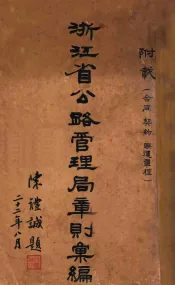 附載(合同 契約 聯運章程)
浙江省公路管理局章則彙編
陳體誠題
二十二年八月